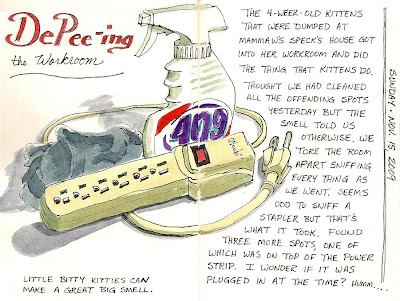 DePee-ing
the Workroom
THE 4-WEEK-OLD KITTENS
THAT WERE DUMPED AT
MAMMAW'S SPECK'S HOUSE GOT
INTO HER WORKROOM AND DID
THE THING THAT KITTENS DO.
THOUGHT WE HAD CLEANED
ALL THE OFFENDING SPOTS
YESTERDAY BUT THE
SMELL TOLD US
OTHERWISE. WE
TORE THE ROOM
APART SNIFFING
EVERY THING AS
WE WENT. SEEMS
ODD TO SNIFF A
STAPLER BUT THAT'S
WHAT IT TOOK. FOUND
THREE MORE SPOTS, ONE OF
WHICH WAS ON TOP OF THE POWER
STRIP. I WONDER IF IT WAS
PLUGGED IN AT THE TIME? HUMM....
SUNDAY - NOV. 15 2009
409
LITTLE BITTY KITTIES CAN
MAKE A GREAT BIG SMELL.